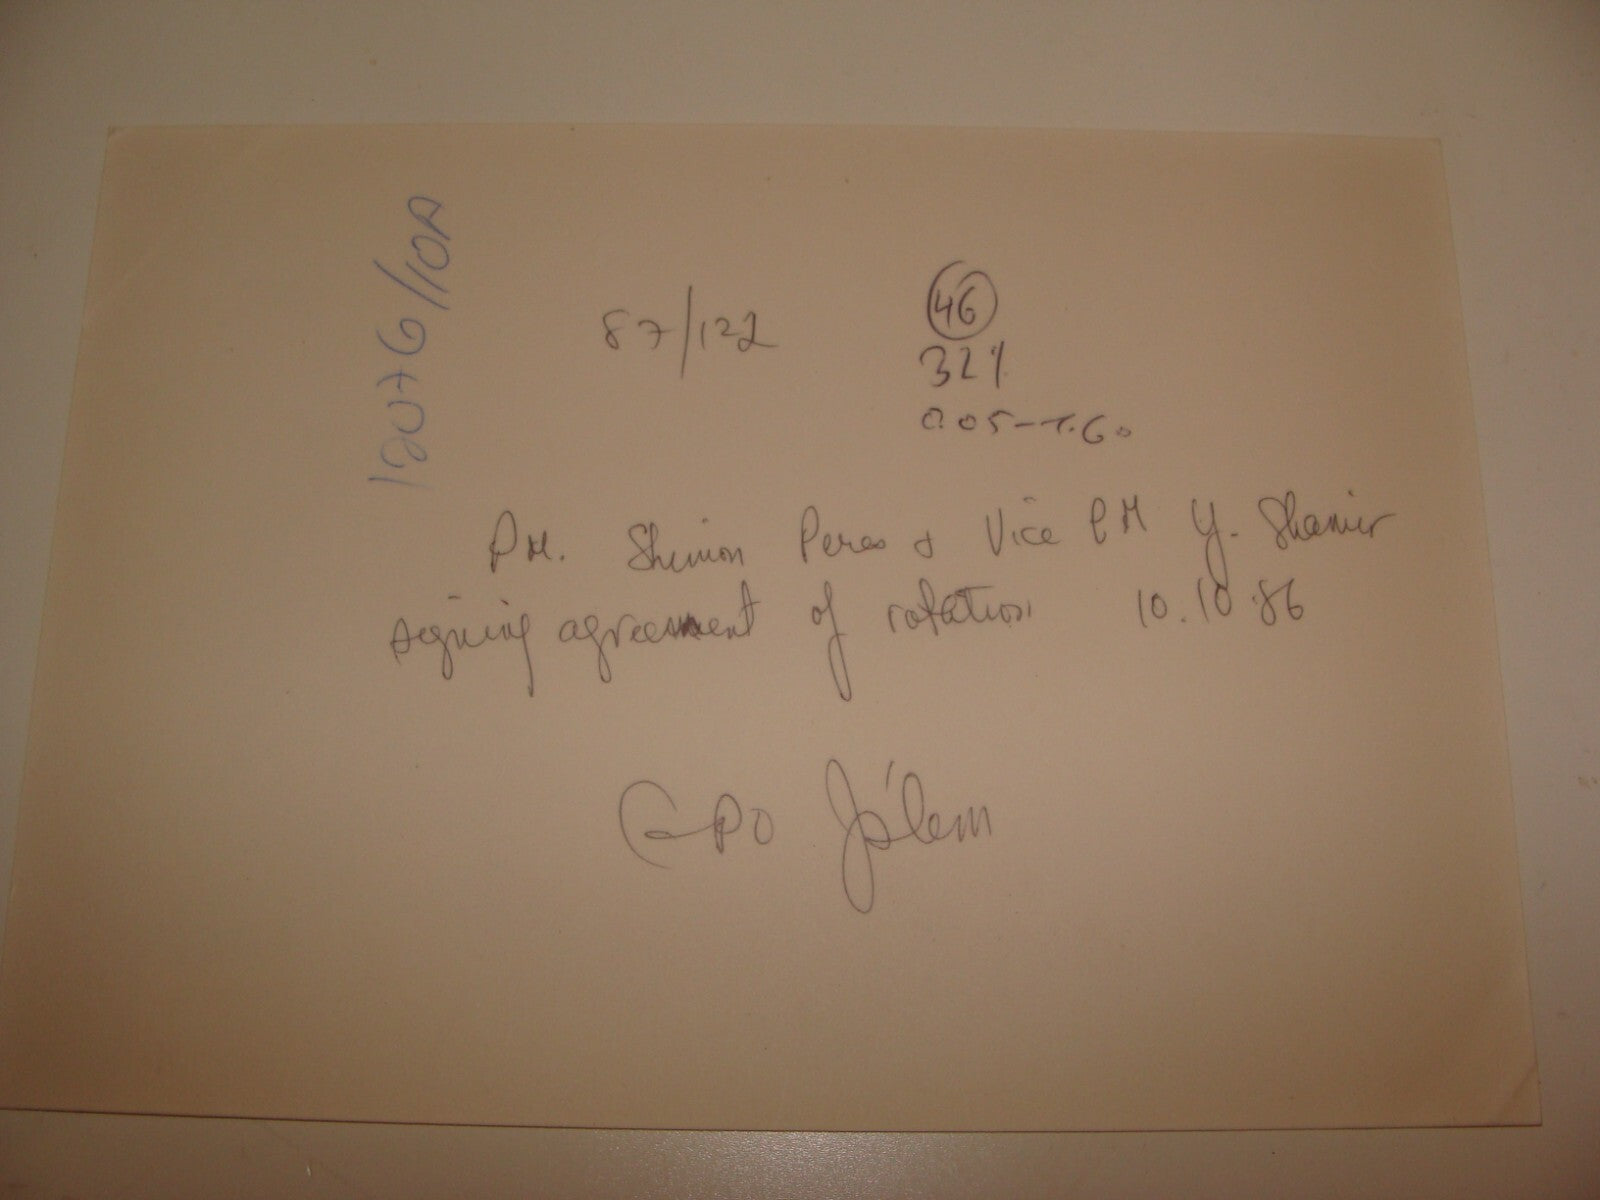 12076/10A
87/122
46
32%
0.05-T.G.
PM. Shimon Peres & Vice PM Y. Shamir
signing agreement of rotation 10.10.86
GPO J'lem